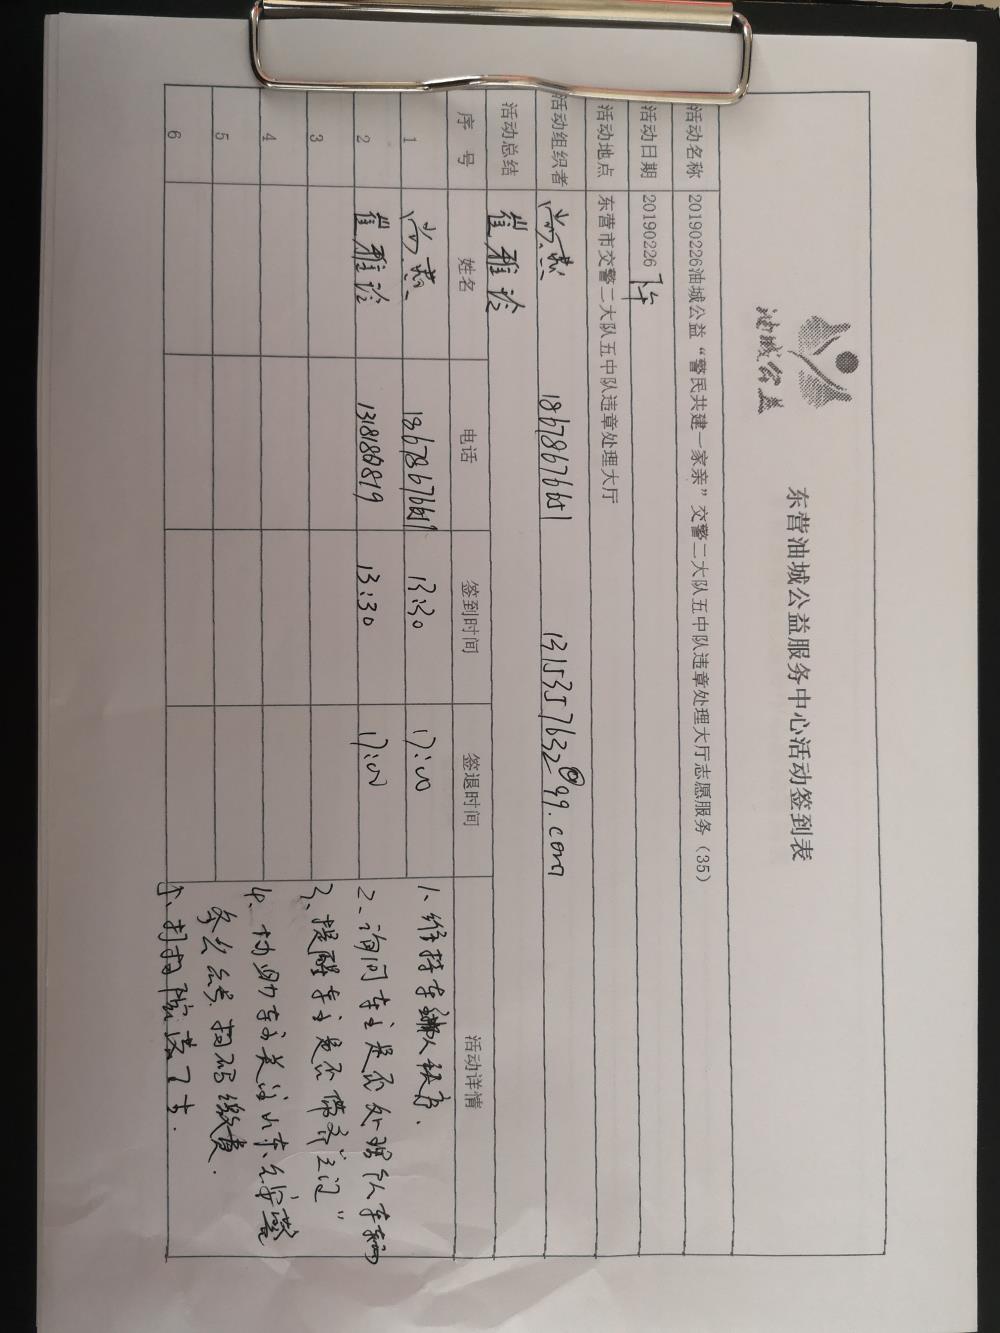 油城公益
东营油城公益服务中心活动签到表
活动名称 20190226油城公益“警民共建一家亲”交警二大队五中队违章处理大厅志愿服务（35）
活动日期 20190226 下午
活动地点 东营市交警二大队五中队违章处理大厅
活动组织者 1315357632@99.com
活动总结 崔雅论
序号 姓名 电话 签到时间 签退时间 活动详情
1 13:30 17:00
2 崔雅论 13:30 17:00
3
4
5
6
1、维持车辆人秩序.
2、询问车主是否处理个人车辆
3、提醒车主是否带齐“三证”
4、协助车主关注山东公安警
务公众号.扫码缴费.
5、打扫院落卫生.